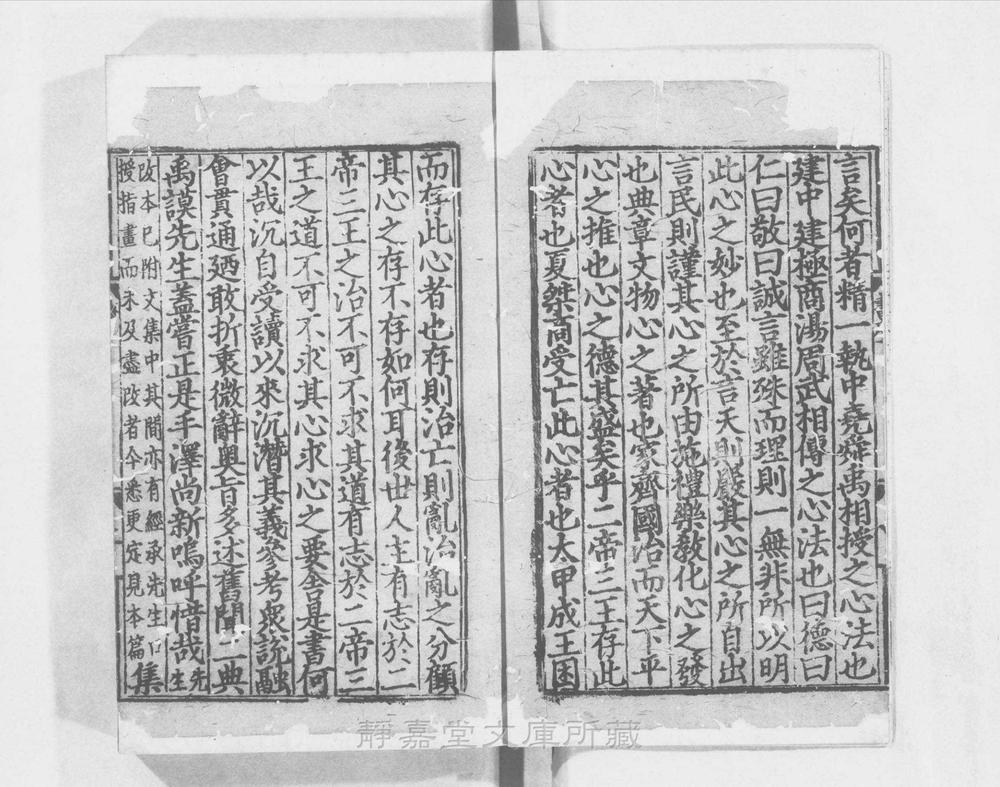 言矣何者精一執中堯舜禹相授之心法也
建中建極商湯周武相傳之心法也曰德曰
仁曰敬曰誠言雖殊而理則一無非所以明
此心之妙也至於言天則嚴其心之所自出
言民則謹其心之所由施禮樂教化心之發
也典章文物心之著也家齊國治而天下平
心之推也心之德其盛矣乎二帝三王存此
心者也夏桀商受亡此心者也太甲成王困
而存此心者也存則治亡則亂治亂之分顧
其心之存不存如何耳後世人主有志於二
帝三王之治不可不求其道有志於二帝三
王之道不可不求其心求心之要舍是書何
以哉沉自受讀以來沉潛其義參考衆說融
會貫通廼敢折衷微辭奧旨多述舊聞二典
禹謨先生蓋嘗正是手澤尚新嗚呼惜哉先生
改本已附文集中其間亦有經承先生口
授指畫而未及盡改者今悉更定見本篇集
靜嘉堂文庫所藏